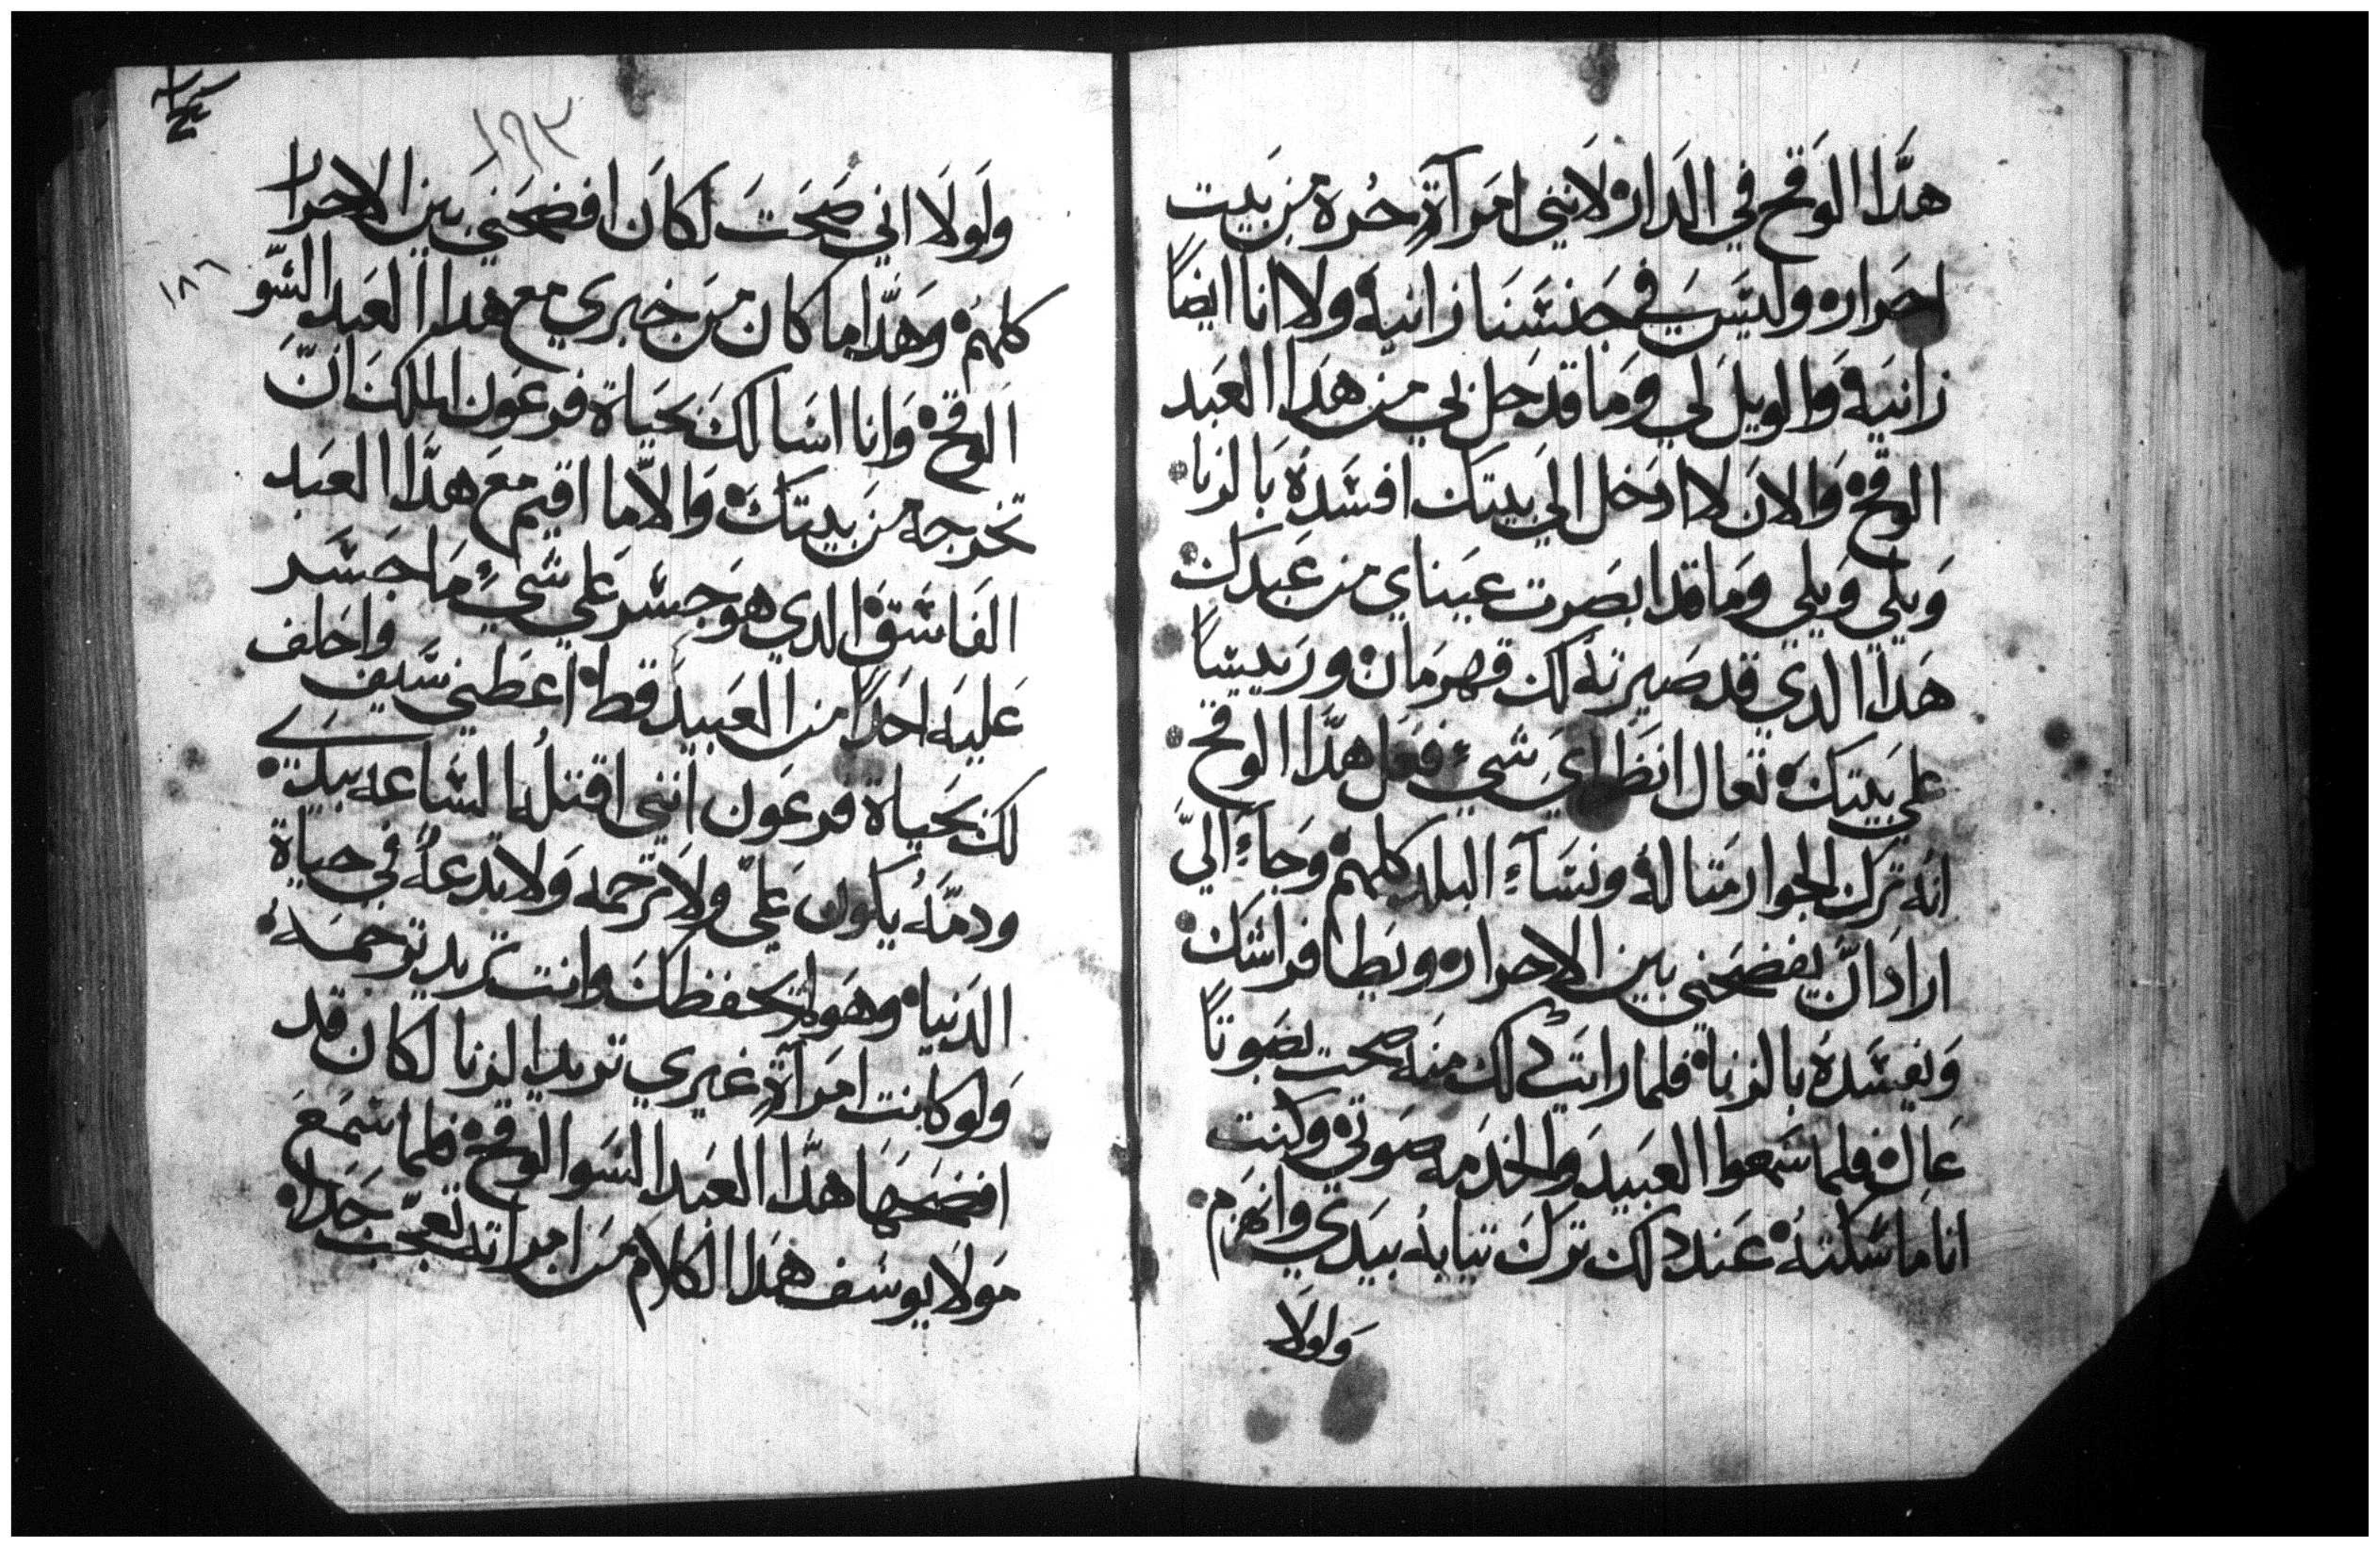 هدا الوقح في الدار لانني امرآة حرة من بيت
احرار وليس في جنسنا زانية ولا انا ايضاً
زانية والويل لي وما قد حل بي من هدا العبد
الوقح والان لا ادخل الي بيتك افسدة بالزنا
ويلي ويلي وما قد ابصرت عيناي من عبدك
هدا الدي قد صيرته لك قهرمان وربيساً
علي بيتك تعال انظر اي شيء فعل هدا الوقح
انه ترك الجوار متاله ونساء البلد كلهم وجاء الي
اراد ان يفضحني بين الاحرار ويطا فراشك
ويفسدة بالزنا فلما رايت دلك منه صحت بصوتاً
عال فلما سمعوا العبيد والخدمه صوتي وكنت
انا ماسكته عند دلك ترك تيابه بيدي وانهزم
ولولا
١٩٣
١٨٦
ولولا اني صحت لكان افضحني بين الاحرار
كلهم وهدا ما كان من خبري مع هدا العبد السو
الوقح وانا اسالك بحياة فرعون الملك ان
تخرجه من بيتك والا ما اقيم مع هدا العبد
الفاسق الدي هو جسر علي شيء ما جسر
عليه احداً من العبيد قط اعطني سيف واحلف
لك بحياة فرعون انني اقتله الساعه بيدي
ودمه يكون علي ولا ترحمه ولا تدعه في حياة
الدنيا وهو لم يحفظك وانت تريد ترحمه
ولو كانت امرآة غيري تريد الزنا لكان قد
افضحها هدا العبد السو الوقح فلما سمع
مولا يوسف هدا الكلام من امراته تعجب جدا